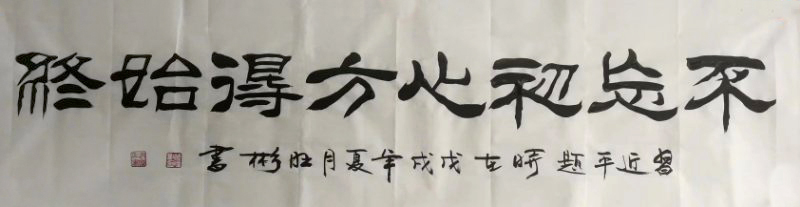 不忘初心方得始終
習近平题時在戊戌年夏月旺彬書